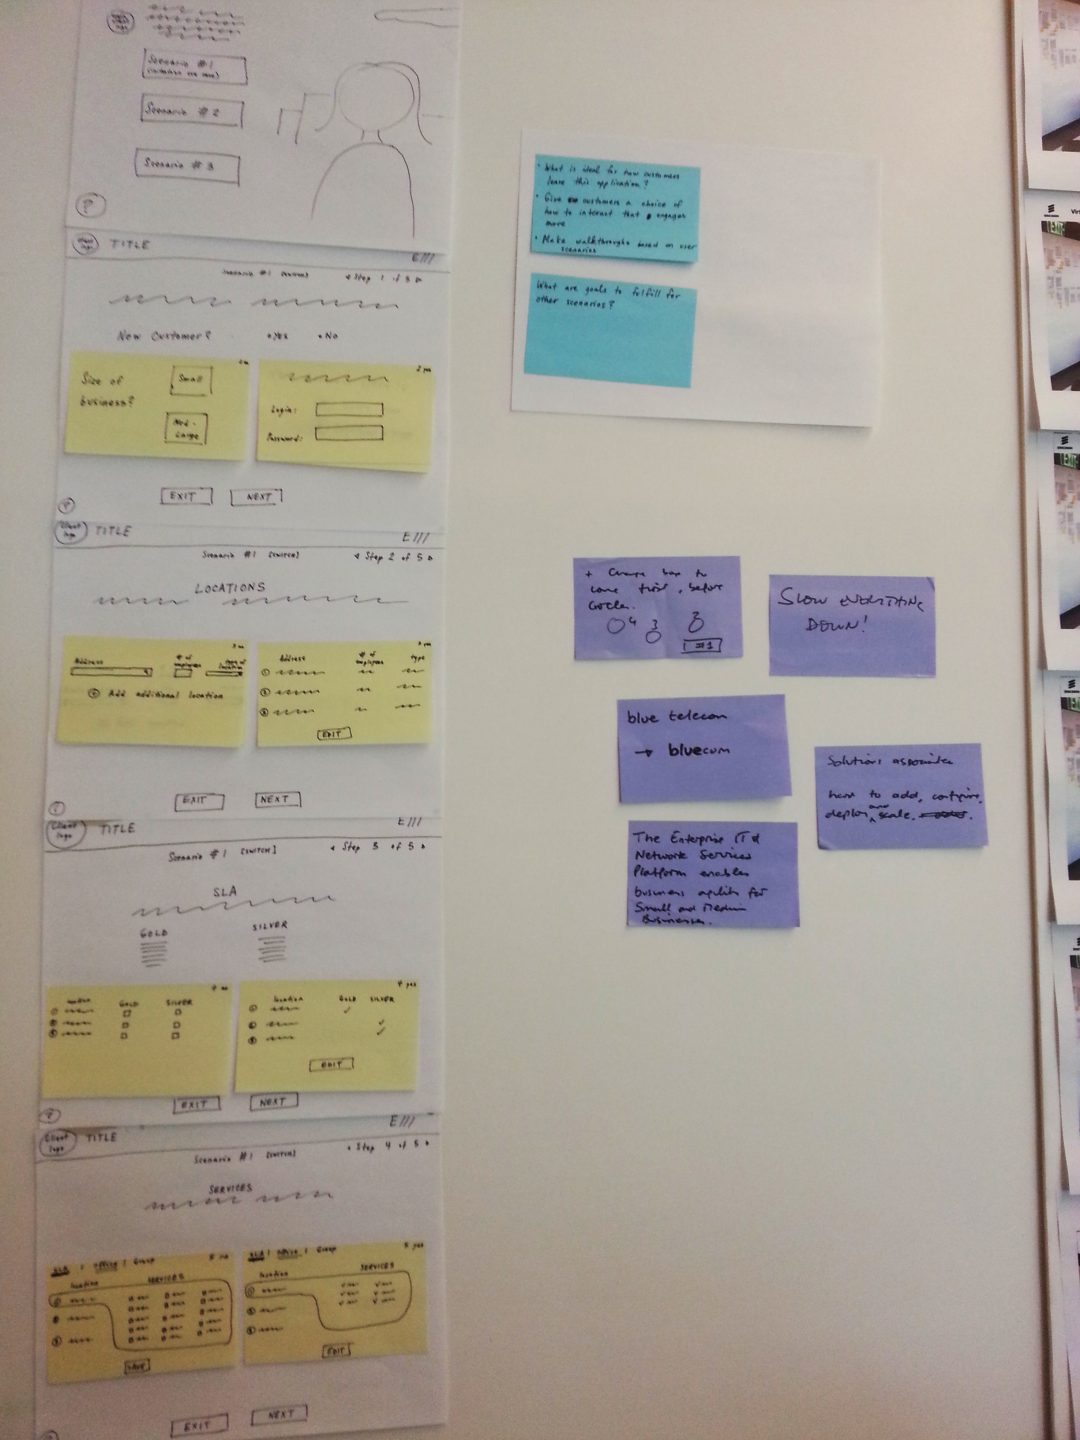 Scenario #1
Scenario #2
Scenario #3
?
Client logo
TITLE
E///
Scenario #1 [SWITCH]
Step 1 of 5
New Customer?
YES
No
Size of
business?
Small
Med-
Large
2 yes
Login:
Password:
EXIT
NEXT
?
Client
logo
TITLE
E///
Scenario #1 [SWITCH]
Step 2 of 5
LOCATIONS
Address
# of
employees
type of
location
+ Add additional location
Address
# of
employees
type
1
2
3
EDIT
EXIT
NEXT
?
Client
logo
TITLE
E///
Scenario #1 [SWITCH]
Step 3 of 5
SLA
GOLD
SILVER
4 no
location
GOLD
SILVER
1
2
3
4 yes
location
GOLD
SILVER
1
2
3
EDIT
EXIT
NEXT
?
Client
logo
TITLE
E///
Scenario #1 [SWITCH]
Step 4 of 5
SERVICES
5 no
SLA | Office | Group
location
SERVICES
1
2
3
SAVE
5 yes
SLA | Office | Group
location
SERVICES
1
2
3
EDIT
EXIT
NEXT
• What is ideal for how customers
leave this application?
• Give customers a choice of
how to interact that engages
more
• Make walkthroughs based on user
scenarios
What are goals to fulfill for
other scenarios?
to
come first, before
circles.
#1
SLOW EVERYTHING
DOWN!
blue telecom
→ bluecom
Solutions
how to add, configure,
deploy and scale.
The Enterprise IT &
Network Services
Platform enables
business agility for
Small and Medium
Businesses.
EXIT
ERICSSON